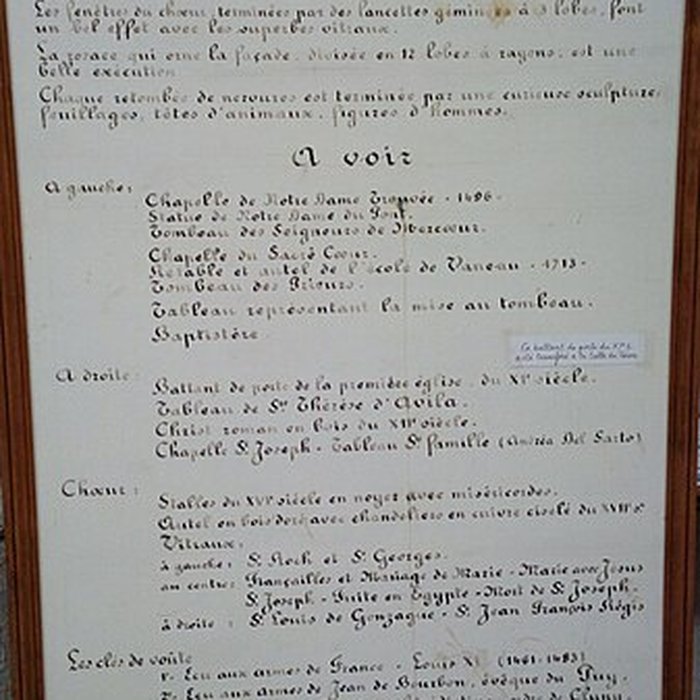 Les fenêtres du chœur, terminées par des lancettes géminées à 3 lobes, font
un bel effet avec les superbes vitraux.
La rosace qui orne la façade, divisée en 12 lobes à rayons, est une
belle exécution
Chaque retombée de nervures est terminée par une curieuse sculpture,
feuillages, têtes d'animaux, figures d'hommes.
A voir
A gauche :
Chapelle de Notre Dame Trouvée - 1496 -
Statue de Notre Dame du Pont.
Tombeau des Seigneurs de Mercœur.
Chapelle du Sacré Cœur.
Retable et autel de l'école de Vaneau - 1713 -
Tombeau des Prieurs.
Tableau représentant la mise au tombeau.
Baptistère.
Ce battant de porte du XIe s.
a été transféré à la Salle du
A droite :
Battant de porte de la première église, du XIe siècle.
Tableau de Ste Thérèse d'Avila.
Christ roman en bois du XIIe siècle.
Chapelle St Joseph - Tableau Ste famille (Andréa Del Sarto)
Chœur :
Stalles du XVIe siècle en noyer avec miséricordes.
Autel en bois doré avec chandeliers en cuivre ciselé du XVIIe s.
Vitraux :
à gauche : St Roch et St Georges.
au centre : Fiançailles et Mariage de Marie - Marie avec Jésus
St Joseph - Fuite en Egypte - Mort de St Joseph.
à droite : St Louis de Gonzague - St Jean François Régis
Les clés de voûte
1°- Ecu aux armes de France - Louis XI (1461-1483)
2°- Ecu aux armes de Jean de Bourbon, évêque du Puy,
de Cluny